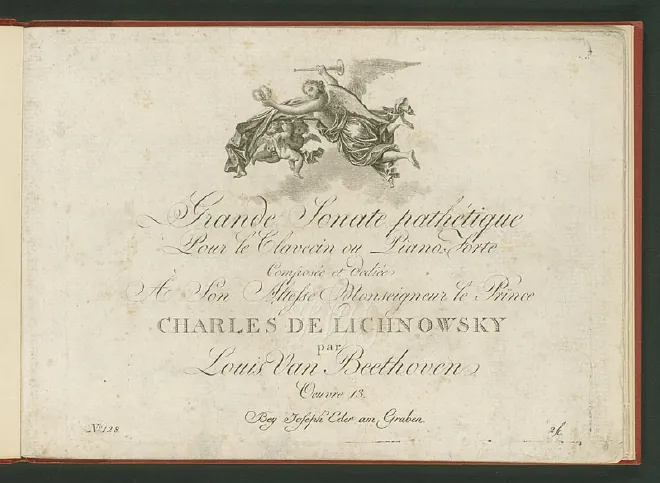 Grande Sonate pathétique
Pour le Clavecin ou Piano-Forte
Composée et dediée
À Son Altesse Monseigneur le Prince
CHARLES DE LICHNOWSKY
par
Louis Van Beethoven
Oeuvre 13.
Bey Joseph Eder am Graben.
N° 128